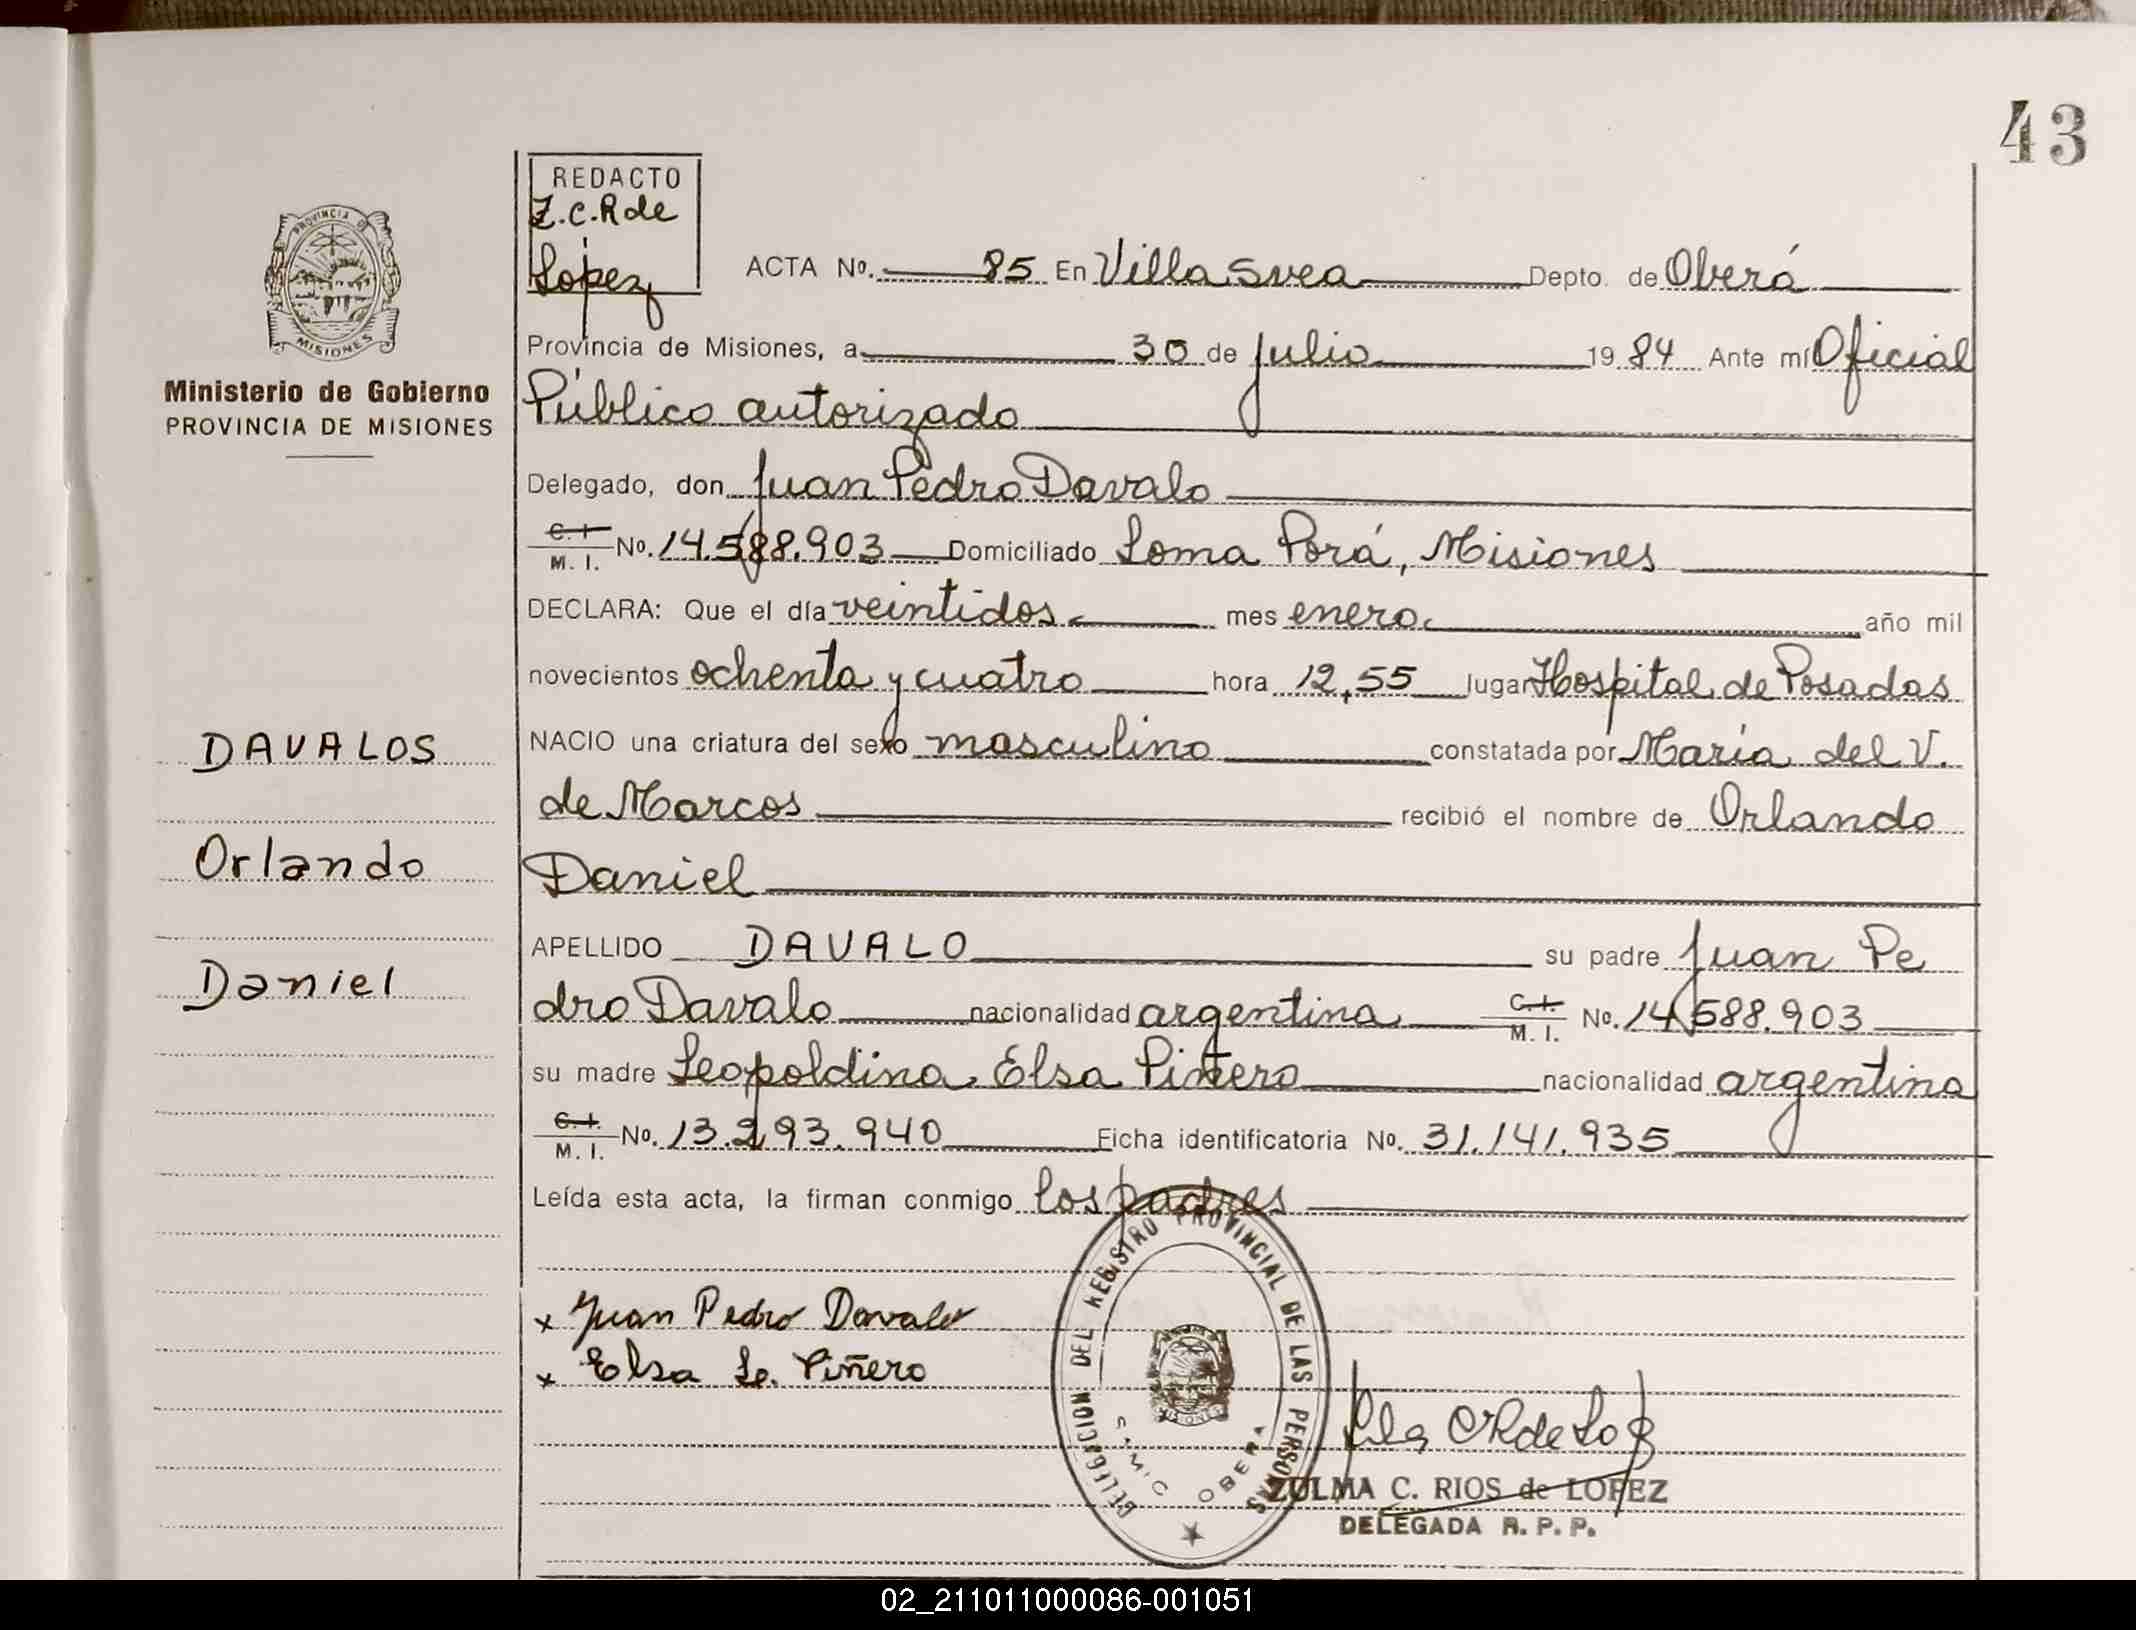 43
REDACTO
Z.C.R de
Lopez
PROVINCIA DE
MISIONES
Ministerio de Gobierno
PROVINCIA DE MISIONES
ACTA No. 85 En Villa Svea Depto. de Oberá
Provincia de Misiones, a 30 de julio 1984 Ante mí Oficial
Público autorizado
Delegado, don Juan Pedro Davalo
C. I. M. I. No. 14.588.903 Domiciliado Loma Porá, Misiones
DECLARA: Que el día veintidos mes enero año mil
novecientos ochenta y cuatro hora 12,55 lugar Hospital de Posadas
NACIO una criatura del sexo masculino constatada por María del V.
de Marcos recibió el nombre de Orlando
Daniel
APELLIDO DAVALO su padre Juan Pe
dro Davalo nacionalidad argentina C. I. M. I. No. 14.588.903
su madre Leopoldina Elsa Piñero nacionalidad argentina
C. I. M. I. No. 13.293.940 Ficha identificatoria No. 31.141.935
Leída esta acta, la firman conmigo los padres
DAVALOS
Orlando
Daniel
x Juan Pedro Davalo
x Elsa Le. Piñero
DELEGACION DEL REGISTRO PROVINCIAL DE LAS PERSONAS
MISIONES
SAMIC OBERA
ZULMA C. RIOS de LOPEZ
DELEGADA R. P. P.
02_211011000086-001051